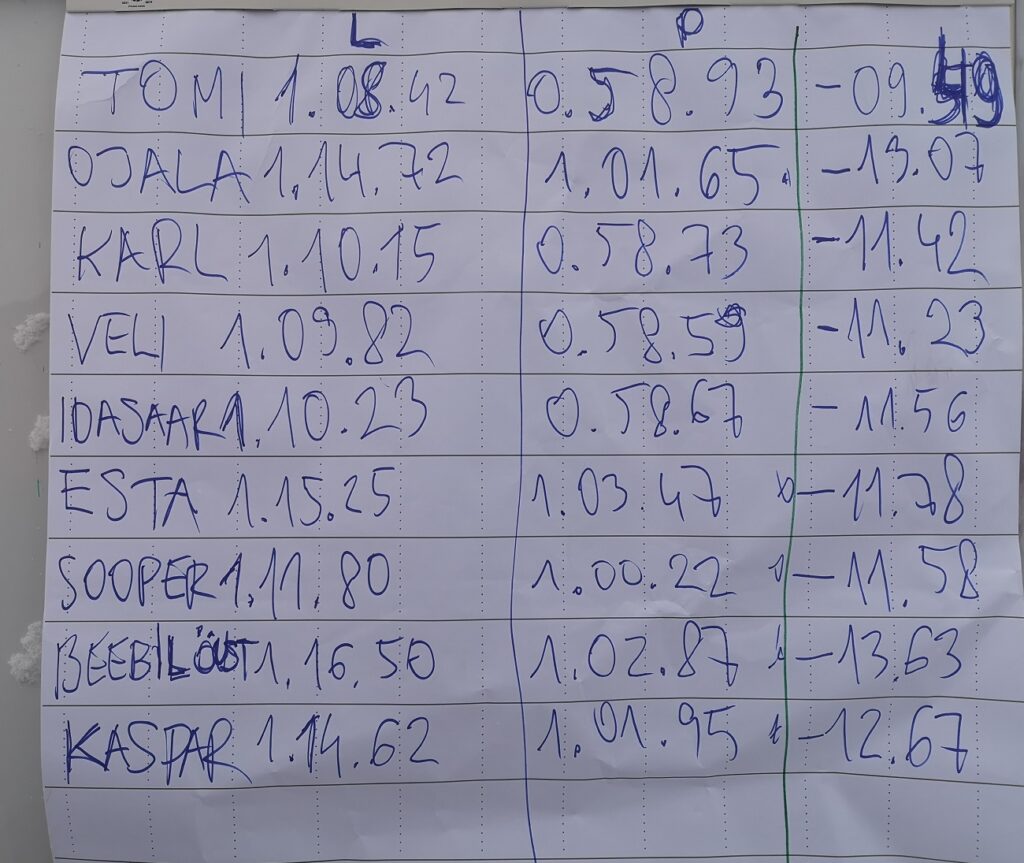 L P
TOMI 1.08.42 0.58.93 -09.49
OJALA 1.14.72 1.01.65. -13.07
KARL 1.10.15 0.58.73 -11.42
VELI 1.09.82 0.58.59 -11.23
IDASAAR 1.10.23 0.58.67 -11.56
ESTA 1.15.25 1.03.47 -11.78
SOOPER 1.11.80 1.00.22 -11.58
BEEBILÕUST 1.16.50 1.02.87 -13.63
KASPAR 1.14.62 1.01.95 -12.67